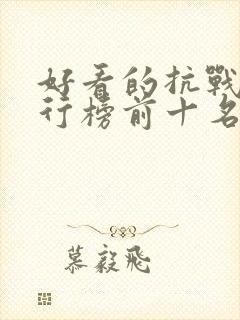 好看的抗戰
行榜前十名
慕毅飛